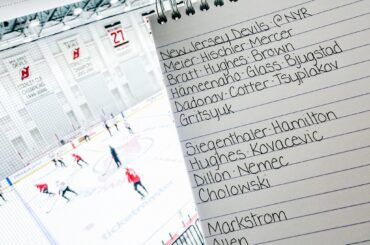 New Jersey Devils @NYR
Meier·Hischier·Mercer
Bratt·Hughes·Brown
Hameenaho·Glass·Bjugstad
Dadonov·Cotter·Tsyplakov
Gritsyuk
Siegenthaler·Hamilton
Hughes·Kovacevic
Dillon·Nemec
Cholowski
Markstrom
Allen
27